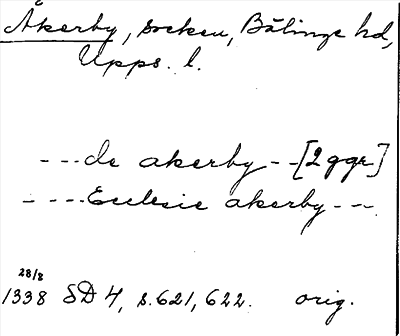 Åkerby, socken, Bälinge hd,
Upps. l.
---de akerby--[2 ggr]
----Ecclesie akerby---
28/8
1338 SD 4, s. 621, 622. orig.